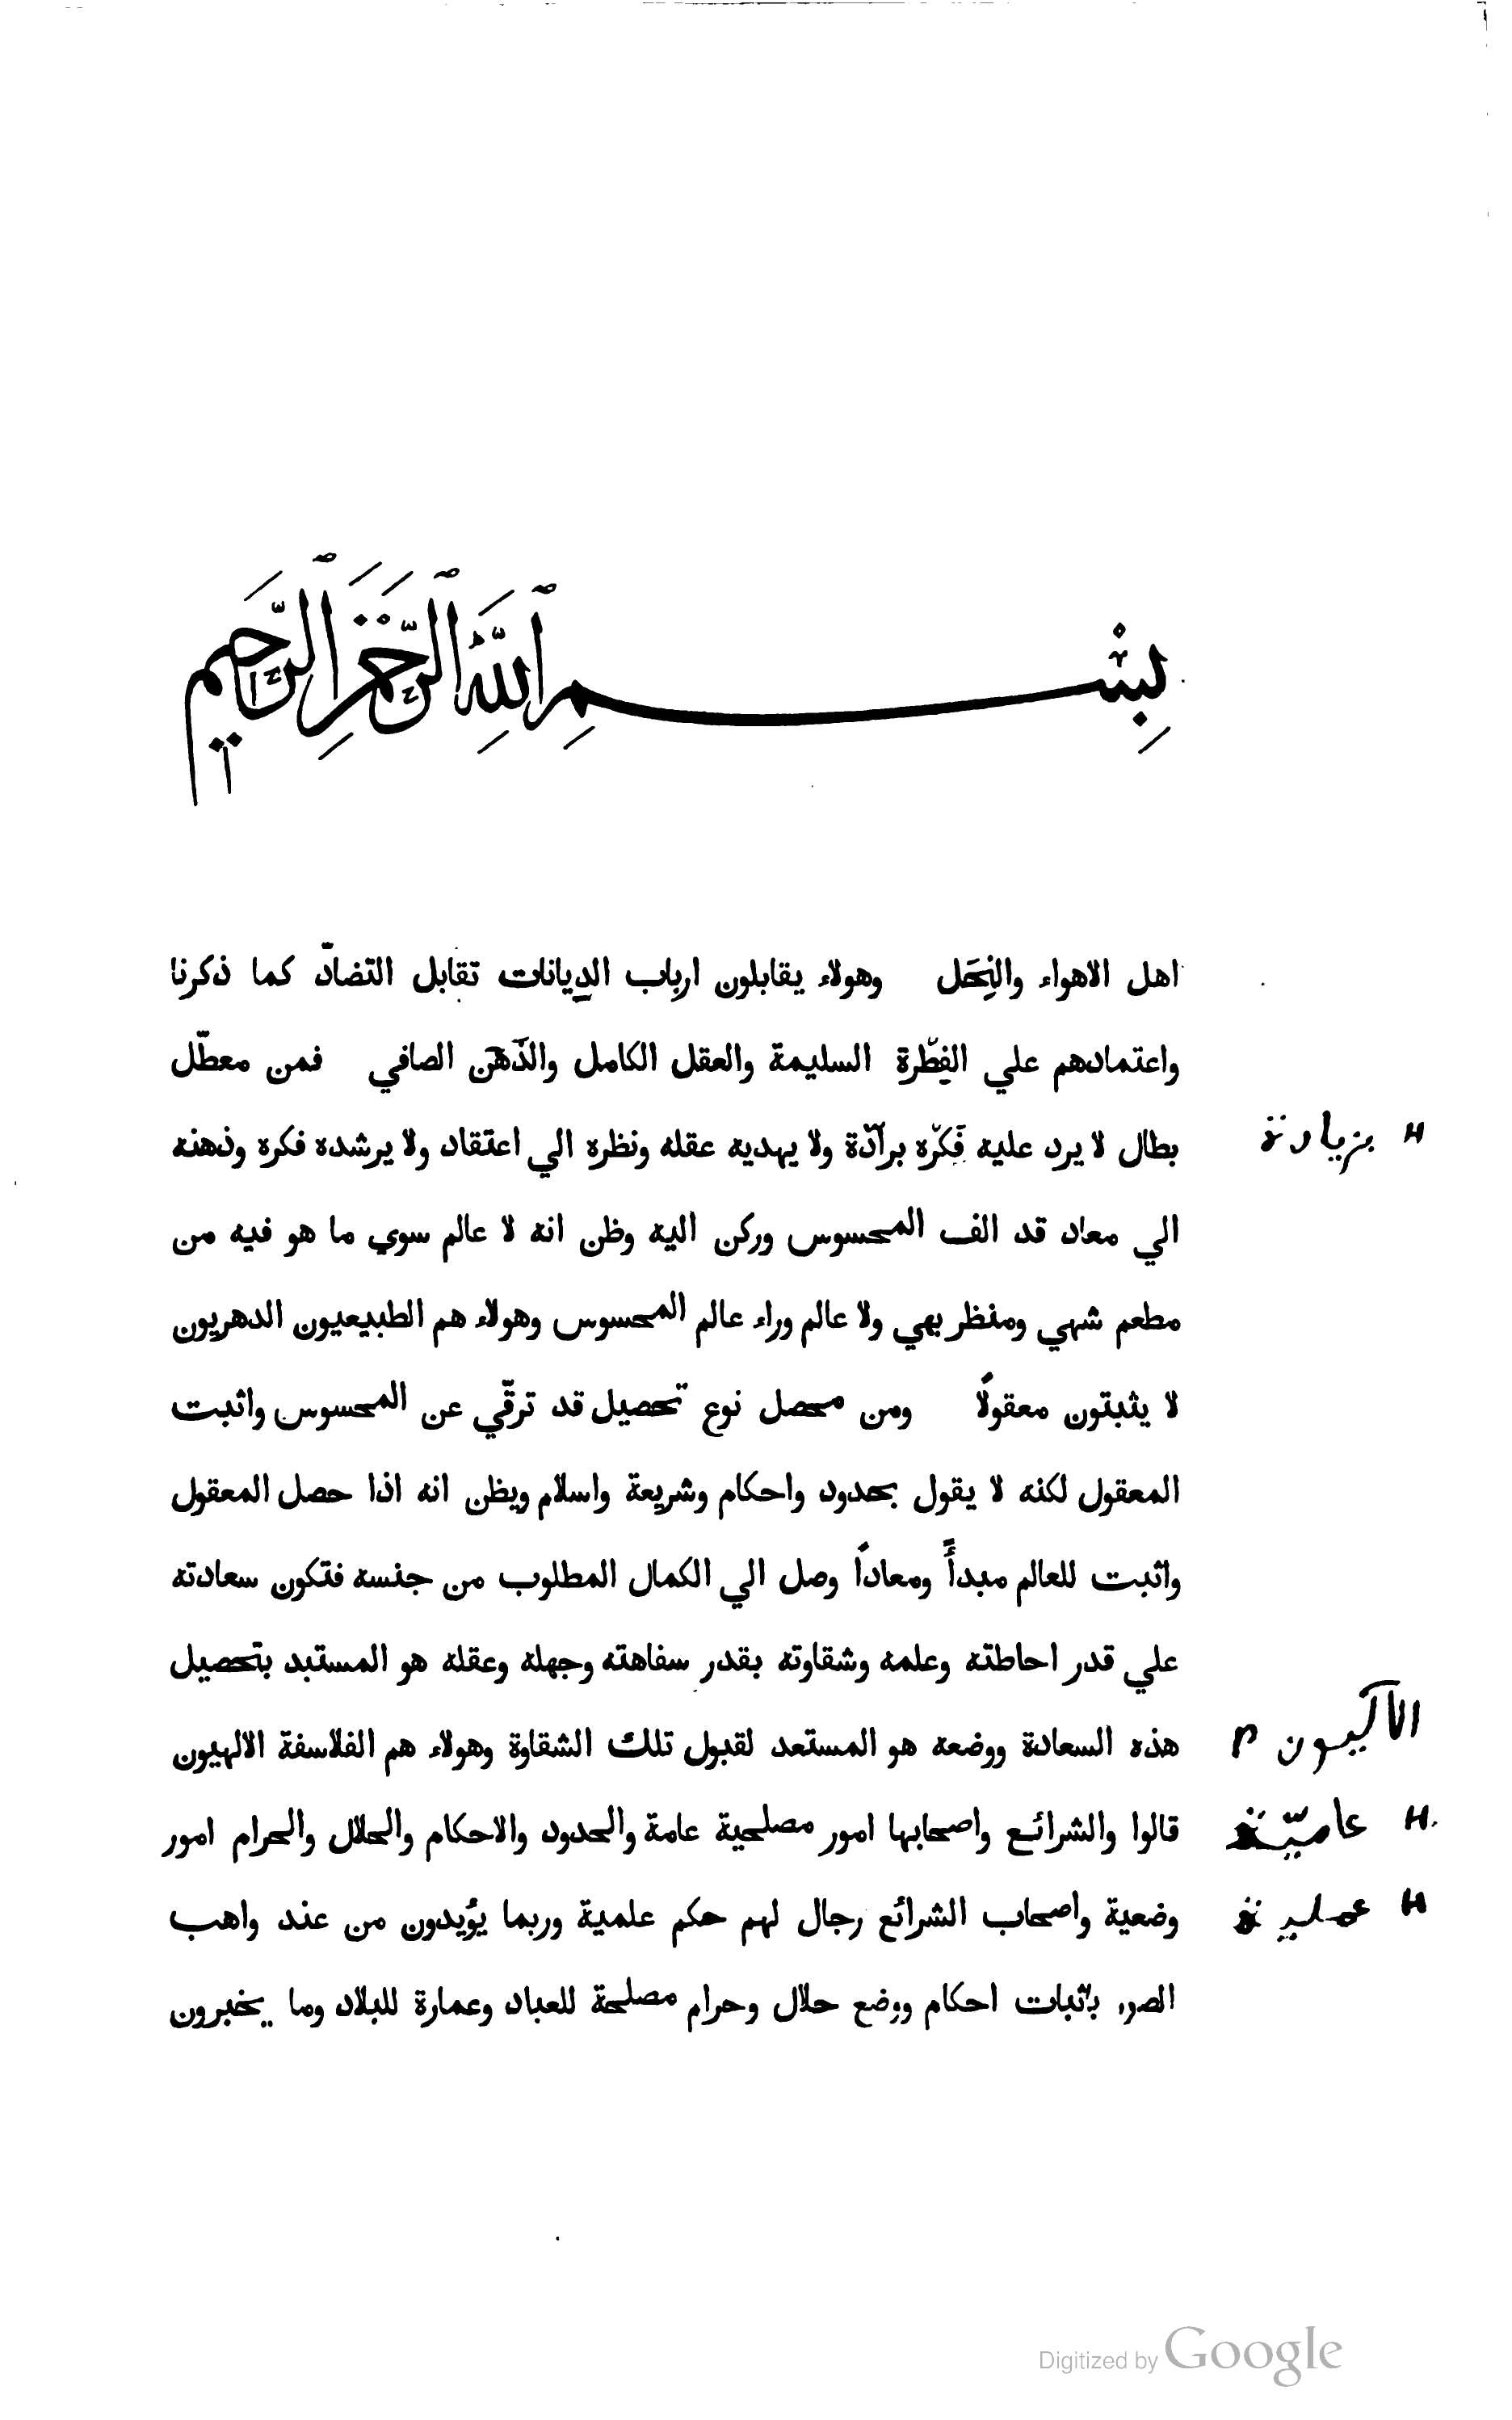 بِسْمِ اللَّهِ الرَّحْمَنِ الرَّحِيمِ
اهل الاهواء والنِحَل وهولاء يقابلون ارباب الديانات تقابل التضادّ كما ذكرنا
واعتمادهم علي الفِطْرة السليمة والعقل الكامل والذّهن الصافي فمن معطّل
بطال لا يرد عليه فكره برآدّة ولا يهديه عقله ونظره الي اعتقاد ولا يرشده فكره وذهنه
H بزيادة
الي معاد قد الف المحسوس وركن اليه وظن انه لا عالم سوي ما هو فيه من
مطعم شهي ومنظر بهي ولا عالم وراء عالم المحسوس وهولاء هم الطبيعيون الدهريون
لا يثبتون معقولًا ومن محصل نوع تحصيل قد ترقّي عن المحسوس واثبت
المعقول لكنه لا يقول بحدود واحكام وشريعة واسلام ويظن انه اذا حصل المعقول
واثبت للعالم مبدأً ومعادًا وصل الي الكمال المطلوب من جنسه فتكون سعادته
علي قدر احاطته وعلمه وشقاوته بقدر سفاهته وجهله وعقله هو المستبد بتحصيل
هذه السعادة ووضعه هو المستعد لقبول تلك الشقاوة وهولاء هم الفلاسفة الالهيون
قالوا والشرائع واصحابها امور مصلحية عامة والحدود والاحكام والحلال والحرام امور
H عاميّة
وضعية واصحاب الشرائع رجال لهم حكم علمية وربما يؤيدون من عند واهب
H عملية
الصور باثبات احكام ووضع حلال وحرام مصلحة للعباد وعمارة للبلاد وما يخبرون
Digitized by Google